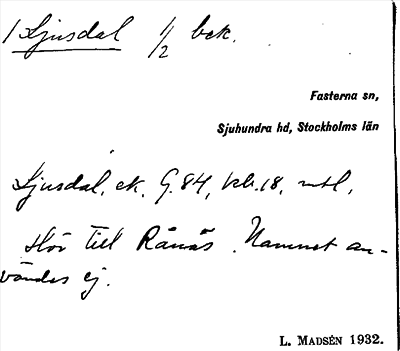 / Ljusdal 1/2 bek.
Fasterna sn,
Sjuhundra hd, Stockholms län
Ljusdal, ek. G. 84, kb. 18, mtl,
Hör till Rånäs. Namnet an-
vändes ej.
L. MADSÉN 1932.